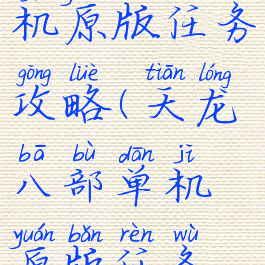 机原版任务
gōng lüè tiān lóng
攻略(天龙
bā bù dān jī
八部单机
yuán bǎn rèn wù
原版任务